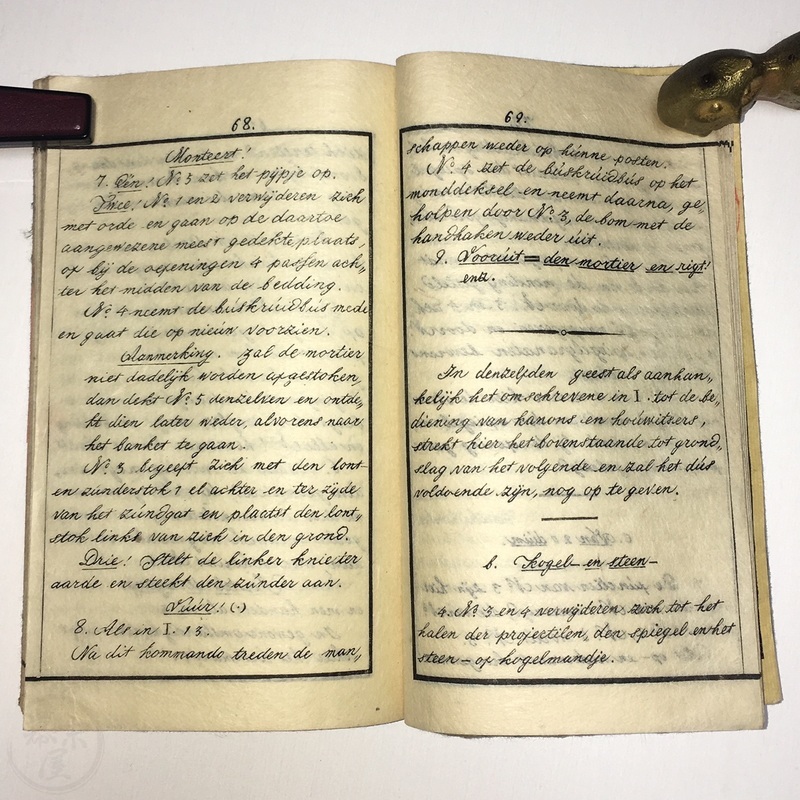 68.
Monteert!
7. Een! No. 5 zet het pijpje op.
Twee! No. 1 en 2 verwijderen zich
met orde en gaan op de daartoe
aangewezene meest gedekte plaats,
of bij de oefeningen 4 passen ach„
ter het midden van de bedding.
No. 4 neemt de búskrúidbús mede
en gaat die op nieuw voorzien.
Aanmerking. Zal de mortier
niet dadelijk worden afgestoken,
dan dekt No. 5 denzelven en ontde„
kt dien later weder, alvorens naar
het banket te gaan.
No. 3 begeeft zich met den lont-
en zúnderstok 1 el achter en ter zijde
van het zúndgat en plaatst den lont„
stok links van zich in den grond.
Drie! Stelt de linker knie ter
aarde en steekt den zúnder aan.
Vúúr! (·)
8. Als in I. 13.
Na dit kommando treden de man„
69.
schappen weder op húnne posten.
No. 4 zet de búskrúidbús op het
monddeksel en neemt daarna, ge„
holpen door No. 3, de bom met de
handhaken weder úit.
9. Vooruit = den mortier en rigt!
enz.
In denzelfden geest als aanhan„
kelijk het omschrevene in I. tot de be„
diening van kanons en hoúwitzers,
strekt hier het bovenstaande tot grond„
slag van het volgende en zal het dús
voldoende zijn, nog op te geven.
b. Kogel- en steen-
4. No. 3 en 4 verwijderen zich tot het
halen der projectilen, den spiegel en het
steen- of kogelmandje.